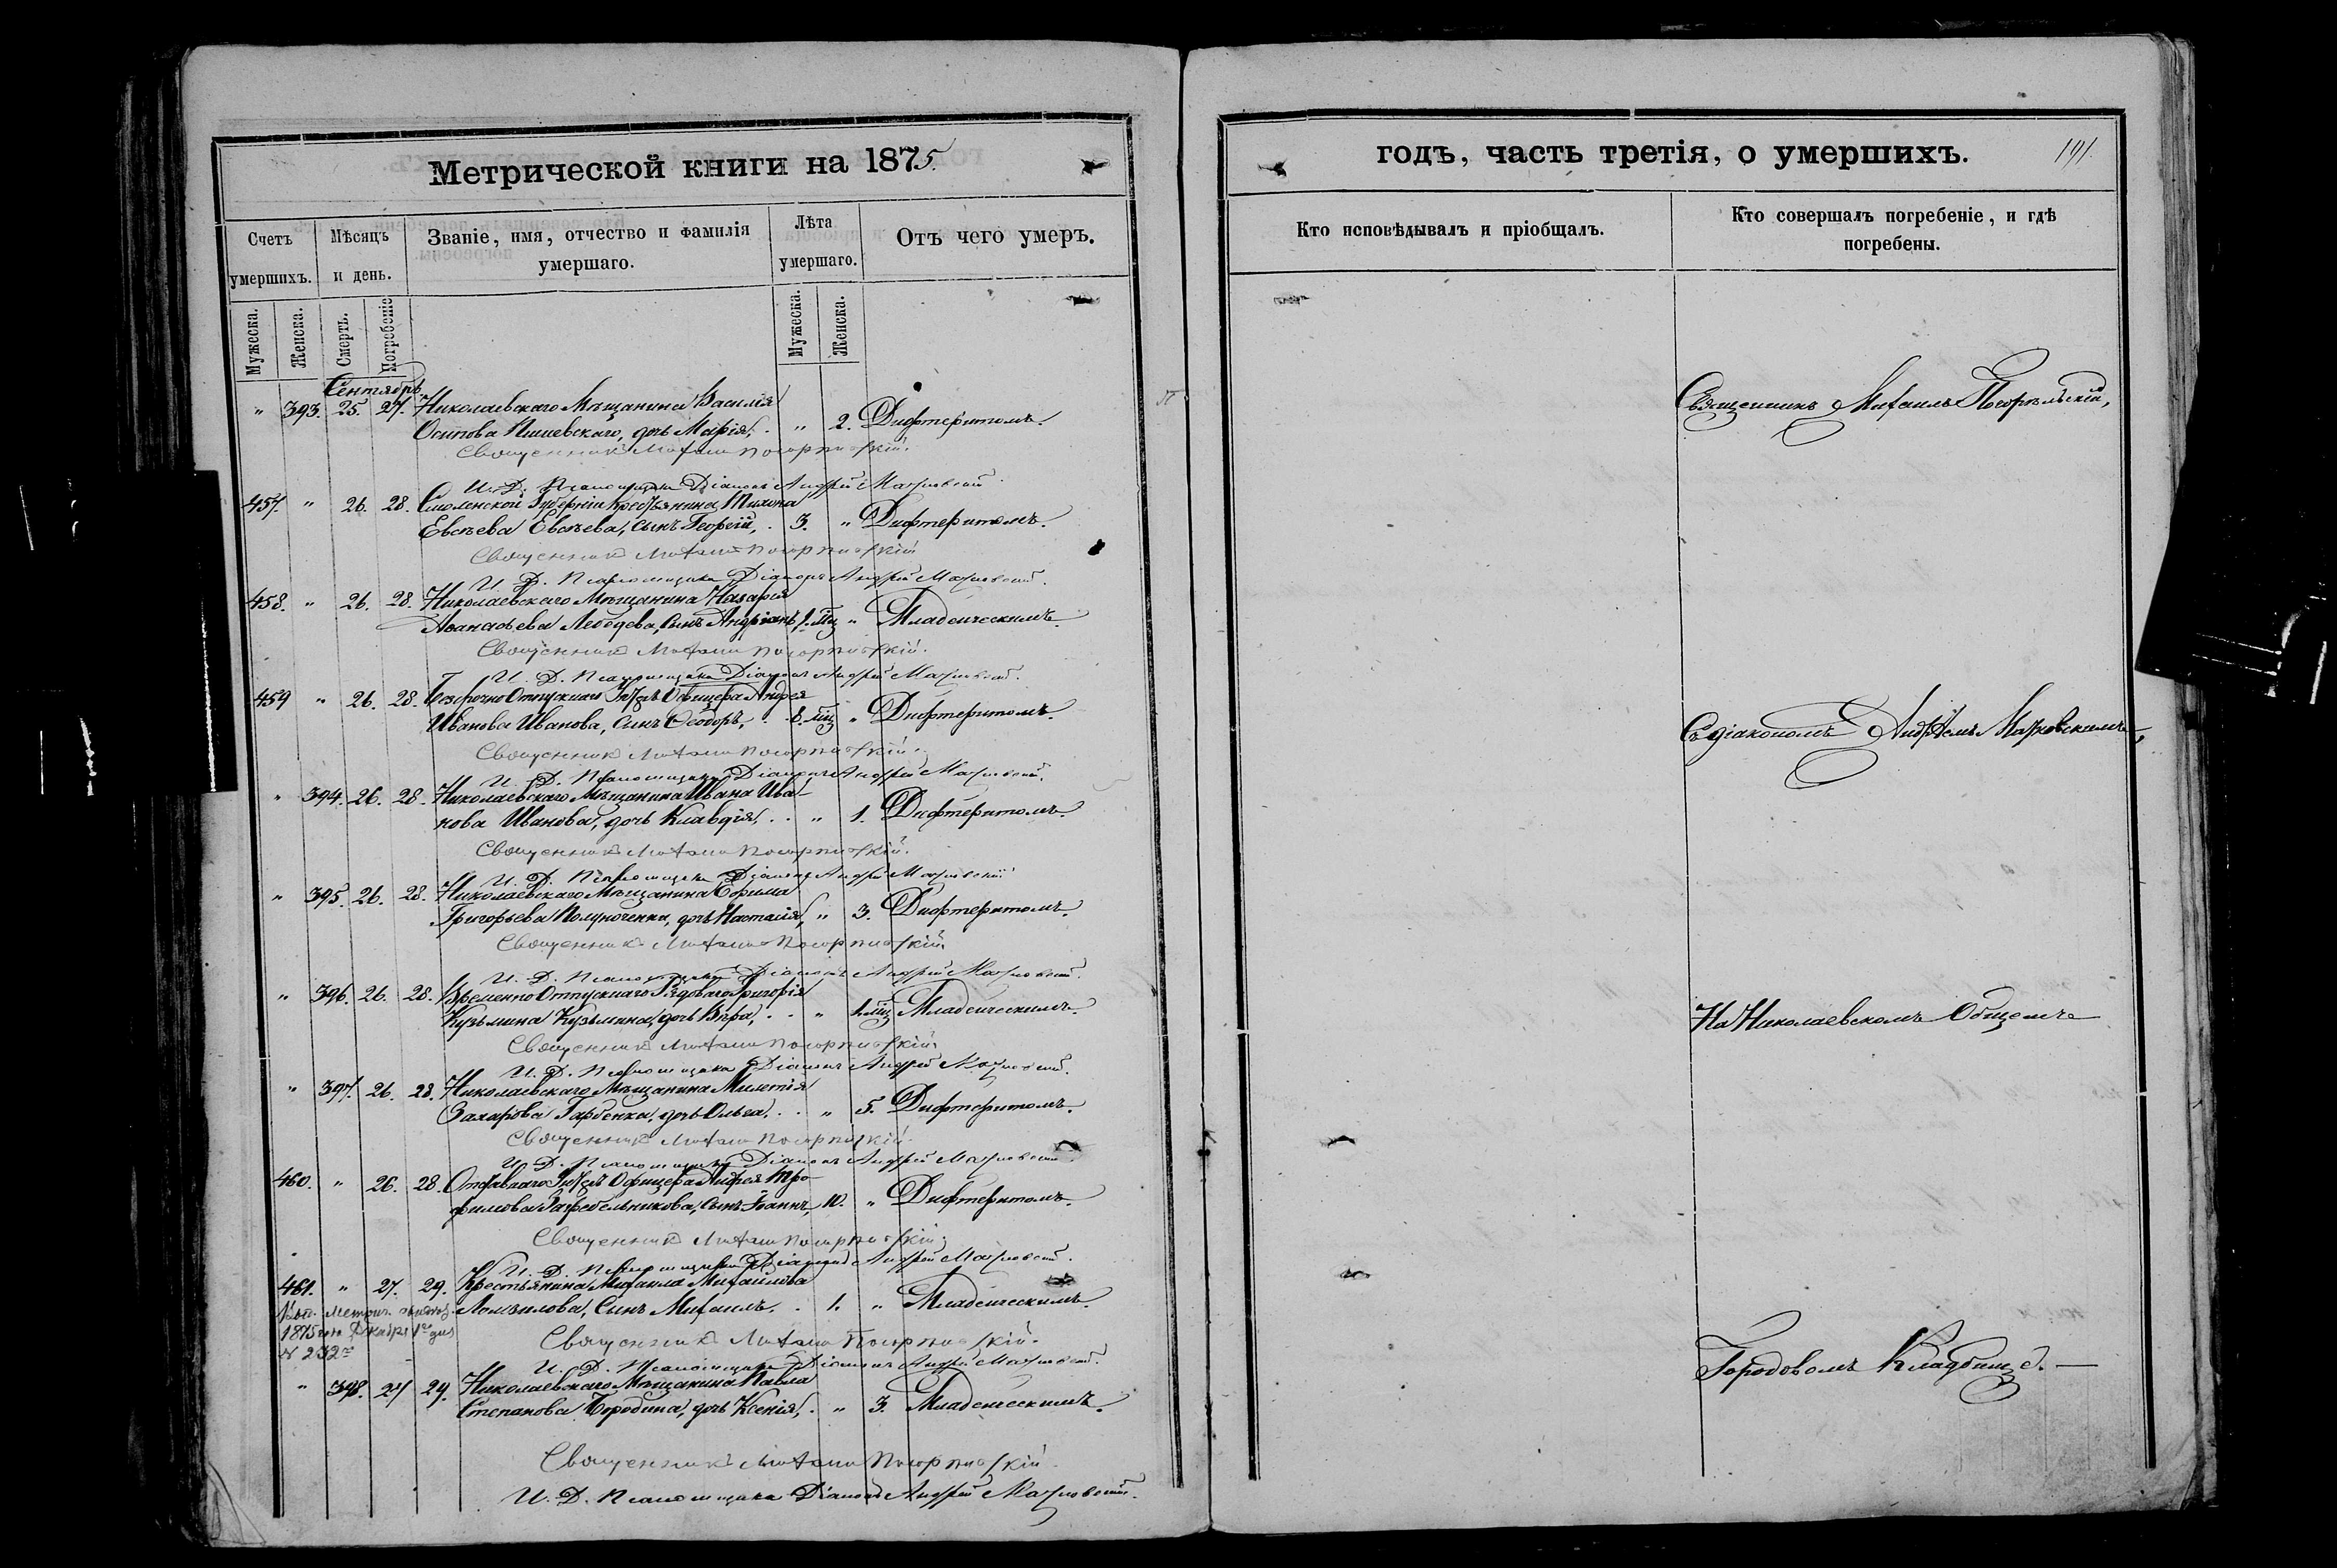 Метрической книги на 1875.
Счетъ умершихъ.
Мѣсяцъ и день.
Званіе, имя, отчество и фамилія умершаго.
Лѣта умершаго.
Отъ чего умеръ.
Мужеска. Женска. Смерть. Погребеніе
Мужеска. Женска.
Сентябрь
" 393. 25. 27. Николаевскаго Мѣщанина Василія
Осипова дочь Марія, . " 2. Дифтеритомъ.
Священникъ Михаилъ Погорѣльскій.
И. Д. Псаломщика Діаконъ Андрей Марковскій.
457. " 26. 28. Смоленской Губерніи Крестьянина Тихона
Евсѣева Евсѣева, сынъ Георгій, . 3. " Дифтеритомъ.
Священникъ Михаилъ Погорѣльскій
И. Д. Псаломщика Діаконъ Андрей Марковскій.
458. " 26. 28. Николаевскаго Мѣщанина Назарія
Аѳанасьева Лебедева, сынъ Андріанъ, " Младенческимъ.
Священникъ Михаилъ Погорѣльскій.
И. Д. Псаломщика Діаконъ Андрей Марковскій.
459 " 26. 28. Безсрочно Отпускнаго Унтеръ Офицера Андрея
Иванова Иванова, сынъ Ѳеодоръ, . 8. мѣц " Дифтеритомъ.
Священникъ Михаилъ Погорѣльскій.
И. Д. Псаломщика Діаконъ Андрей Марковскій.
" 394. 26. 28. Николаевскаго Мѣщанина Ивана Ива-
нова Иванова, дочь Клавдія, . . " 1. Дифтеритомъ.
Священникъ Михаилъ Погорѣльскій.
И. Д. Псаломщика Діаконъ Андрей Марковскій
" 395. 26. 28. Николаевскаго Мѣщанина Ефима
Григорьева Полуноченка, дочь Настасія, " 3. Дифтеритомъ.
Священникъ Михаилъ Погорѣльскій.
И. Д. Псаломщика Діаконъ Андрей Марковскій.
" 396. 26. 28. Временно Отпускнаго Рядоваго Григорія
Кузьмина Кузьмина, дочь Вѣра, . . " мѣц Младенческимъ.
Священникъ Михаилъ Погорѣльскій.
И. Д. Псаломщика Діаконъ Андрей Марковскій.
" 397. 26. 28. Николаевскаго Мѣщанина Милетія
Захарова Гарбенка, дочь Ольга, . . " 5. Дифтеритомъ.
Священникъ Михаилъ Погорѣльскій.
И. Д. Псаломщика Діаконъ Андрей Марковскій.
460. " 26. 28. Отставнаго Унтеръ Офицера Андрея Тро-
фимова Загребельникова, сынъ Іоаннъ, 10. " Дифтеритомъ.
Священникъ Михаилъ Погорѣльскій.
И. Д. Псаломщика Діаконъ Андрей Марковскій.
461. " 27. 29. Крестьянина Михаила Михайлова
сынъ Михаилъ. . 1. " Младенческимъ.
1875 года Декабря 1го дня
№ 232
Священникъ Михаилъ Погорѣльскій.
И. Д. Псаломщика Діаконъ Андрей Марковскій.
" 398. 27 29. Николаевскаго Мѣщанина Павла
Степанова Бородина, дочь Ксенія, . " 3. Младенческимъ.
Священникъ Михаилъ Погорѣльскій
И. Д. Псаломщика Діаконъ Андрей Марковскій.
годъ, часть третія, о умершихъ. 191.
Кто исповѣдывалъ и пріобщалъ.
Кто совершалъ погребеніе, и гдѣ погребены.
Священникъ Михаилъ Погорѣльскій,
Съ діакономъ Андреемъ Марковскимъ,
На Николаевскомъ Общемъ
Городовомъ Кладбищѣ. —